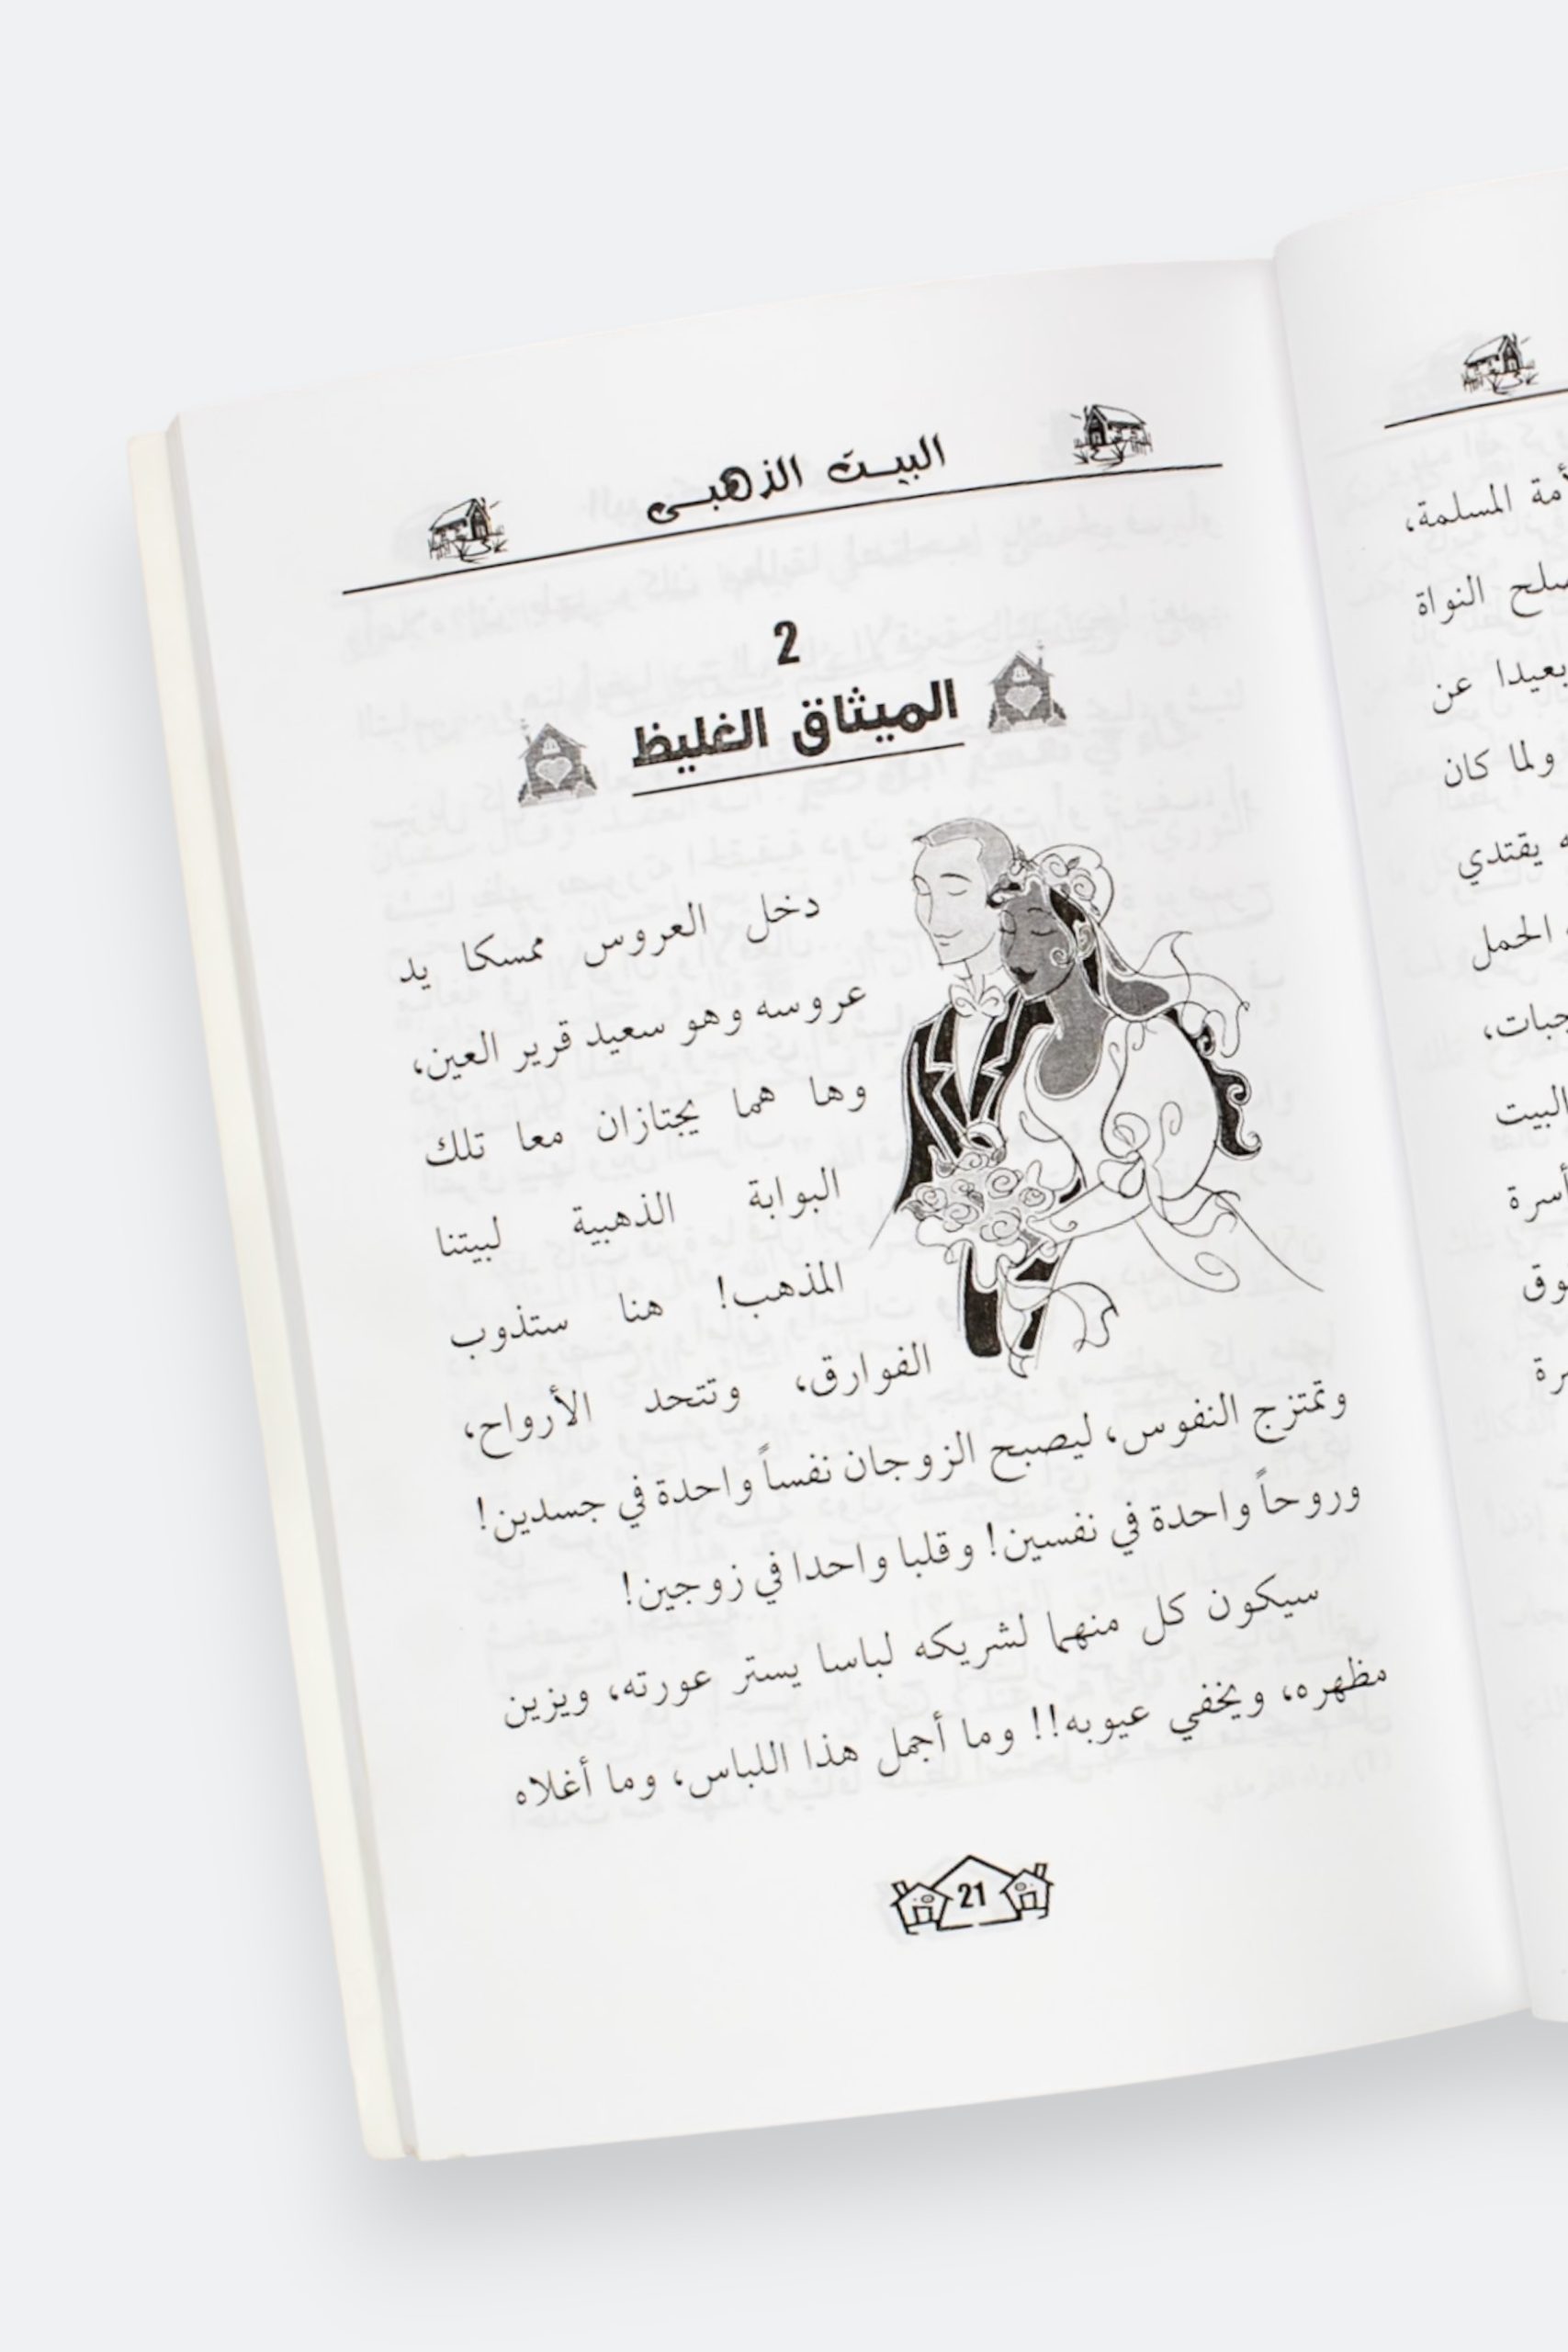 البيت الذهبى
2
الميثاق الغليظ
دخل العروس ممسكا يد
عروسه وهو سعيد قرير العين،
وها هما يجتازان معا تلك
البوابة الذهبية لبيتنا
المذهب! هنا ستذوب
الفوارق، وتتحد الأرواح،
وتمتزج النفوس، ليصبح الزوجان نفساً واحدة في جسدين!
وروحاً واحدة في نفسين! وقلبا واحدا في زوجين!
سيكون كل منهما لشريكه لباسا يستر عورته، ويزين
مظهره، ويخفي عيوبه!! وما أجمل هذا اللباس، وما أغلاه
21
المسلمة،
النواة
بعيدا عن
ولما كان
يقتدي
الحمل
البيت